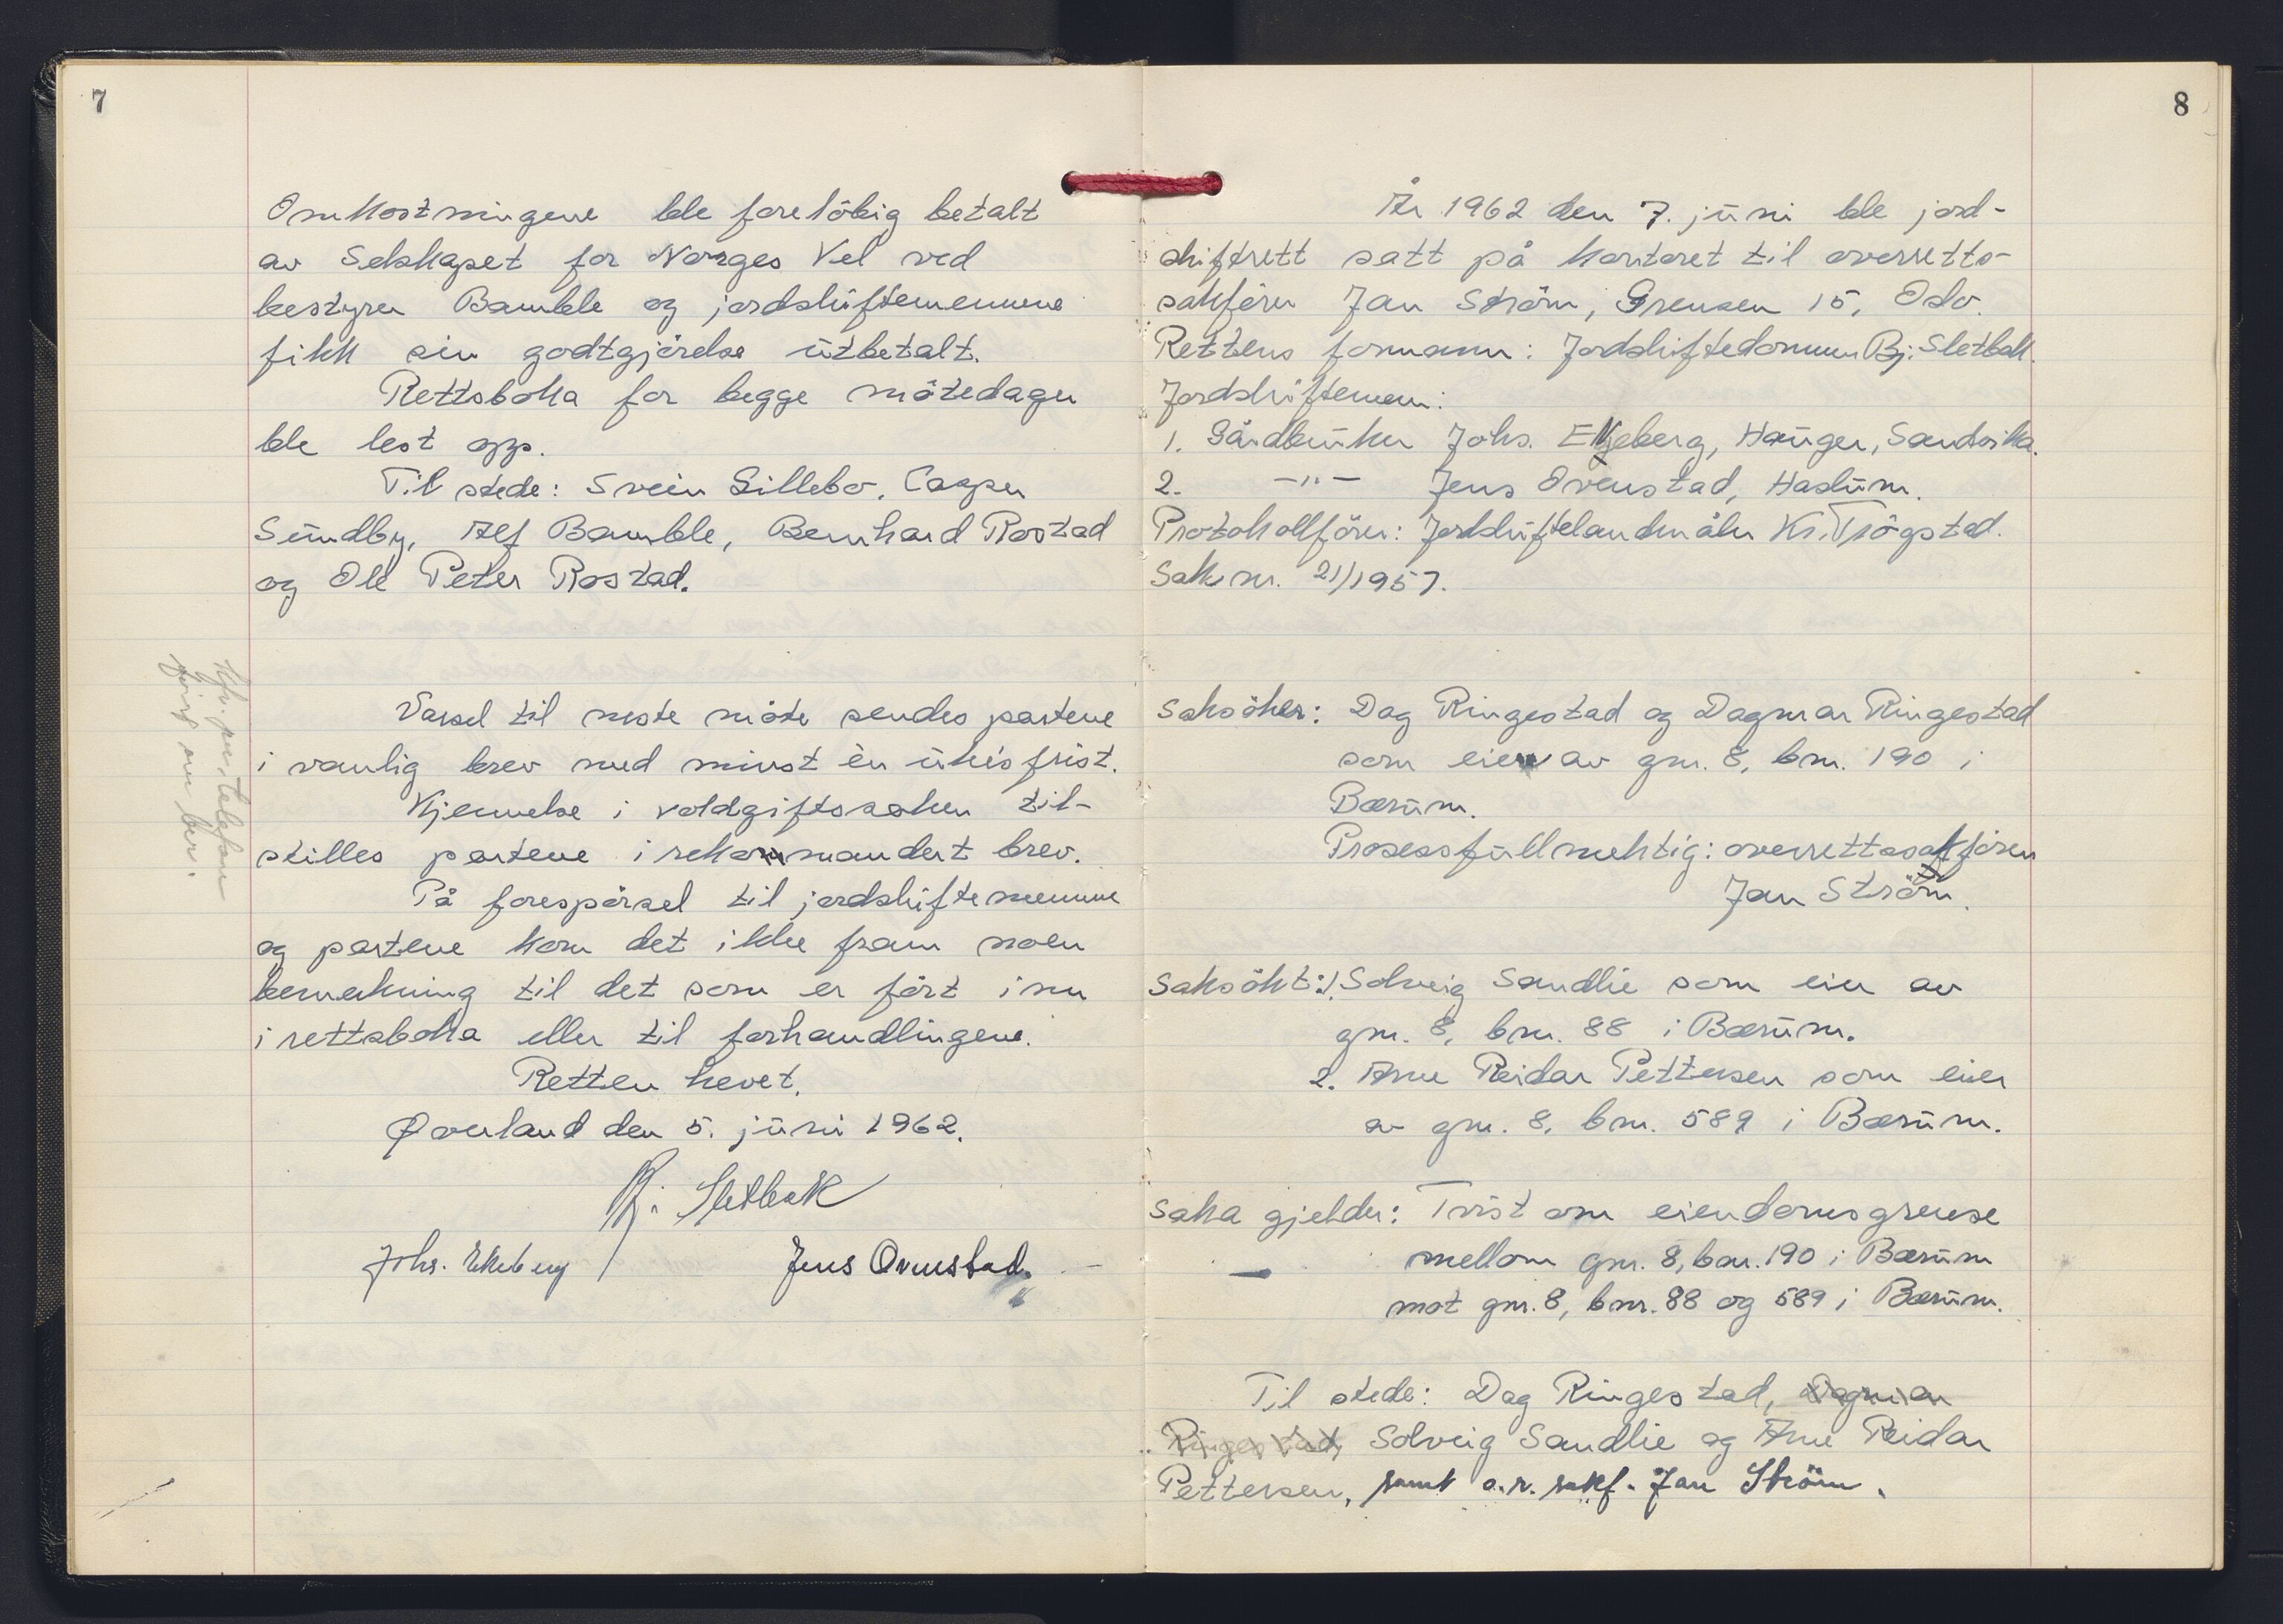 7
Omkostningene ble foreløbig betalt
av Selskapet for Norges Vel ved
bestyrer Bamble og jordskiftemennene
fikk sin godtgjörelse ütbetalt.
Rettsboka for begge mötedager
ble lest opp.
Til stede: Svein Sillebo, Casper
Sündby, Alf Bamble, Bernhard Rostad
og Ole Peter Rostad.
Varsel til neste möte sendes partene
i vanlig brev med minst èn ükes frist.
Kjennelse i voldgiftssaken til-
stilles partene i rekommandert brev.
På forespörsel til jordskiftemennene
og partene kom det ikke fram noen
bemerkning til det som er fört inn
i rettsboka eller til forhandlingene.
Retten hevet.
Øverland den 5. jüni 1962.
Bj. Sletbak
Johs. Ekeberg Jens Ovenstad.
8
År 1962 den 7. jüni ble jord-
skiftrett satt på kontoret til overretts-
sakförer Jan Ström, Grensen 15, Oslo.
Rettens formann: Jordskiftedommer Bj. Sletbak.
Jordskiftemenn:
1. Gårdbrüker Johs. Ekeberg, Haüger, Sandvika.
2. -"- Jens Ovenstad, Haslüm.
Protokollförer: Jordskiftelandmåler Kr. Trögstad.
Sak nr. 21/1957.
Saksöker: Dag Ringestad og Dagmar Ringestad
som eier av gnr. 8, bnr. 190 i
Bærüm.
Prosessfüllmektig: overrettssakförer
Jan Ström.
Saksökt: 1. Solveig Sandlie som eier av
gnr. 8, bnr. 88 i Bærüm.
2. Arne Reidar Pettersen som eier
av gnr. 8, bnr. 589 i Bærüm.
Saka gjelder: Tvist om eiendomsgrense
mellom gnr. 8, bnr. 190 i Bærüm
mot gnr. 8, bnr. 88 og 589 i Bærüm.
Til stede: Dag Ringestad, Dagmar
Ringestad, Solveig Sandlie og Arne Reidar
Pettersen, samt o.r. sakf. Jan Ström.